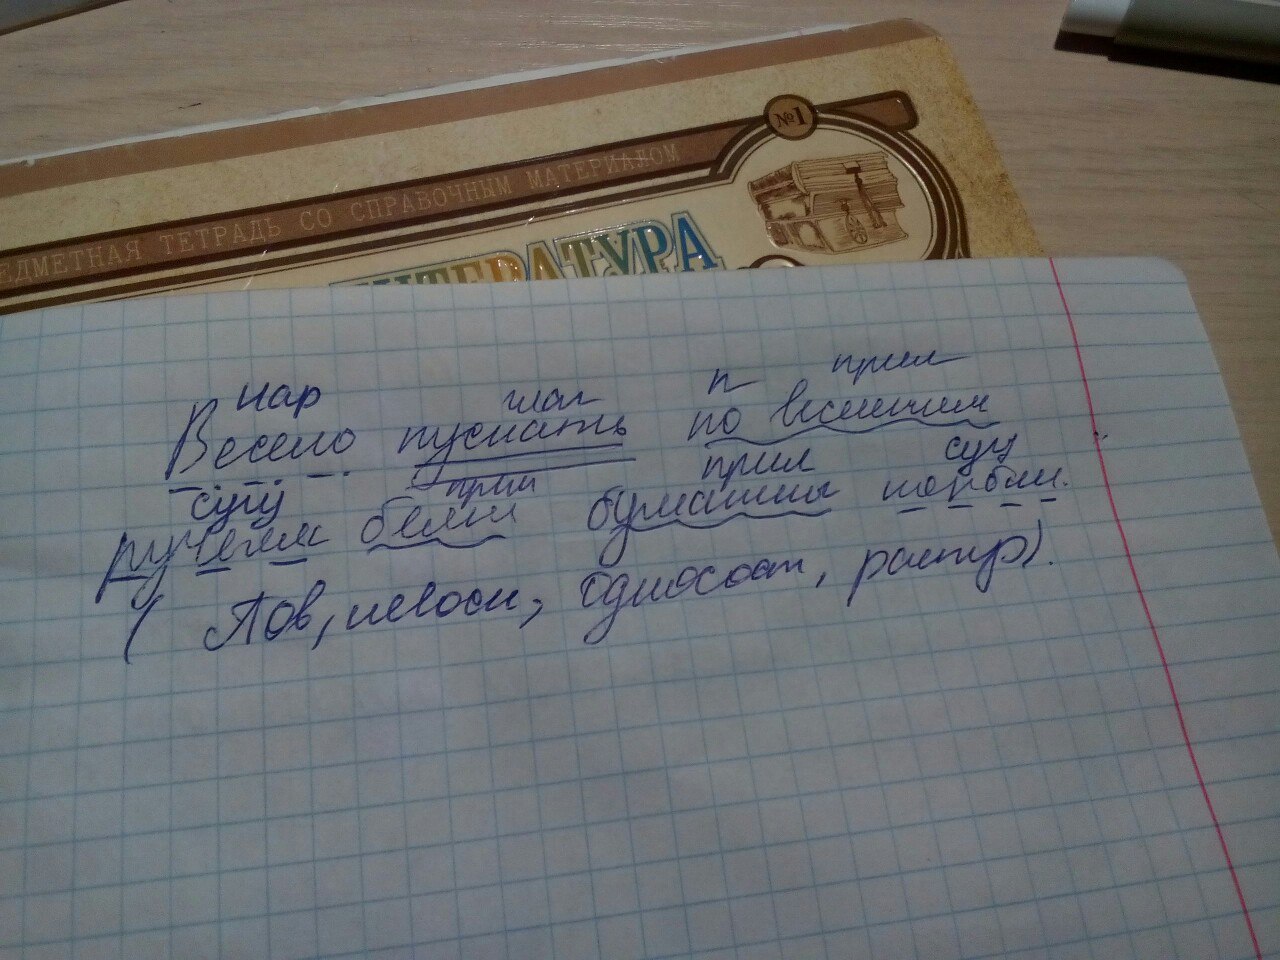 №1
ЕДМЕТНАЯ ТЕТРАДЬ СО СПРАВОЧНЫМ МАТЕРИАЛОМ
ИТЕРАТУРА
нар глаг п прил
Весело пускать по весенним
сущ прил прил сущ
ручьям белые бумажные корабли.
( Пов, невоск, односост, распр).